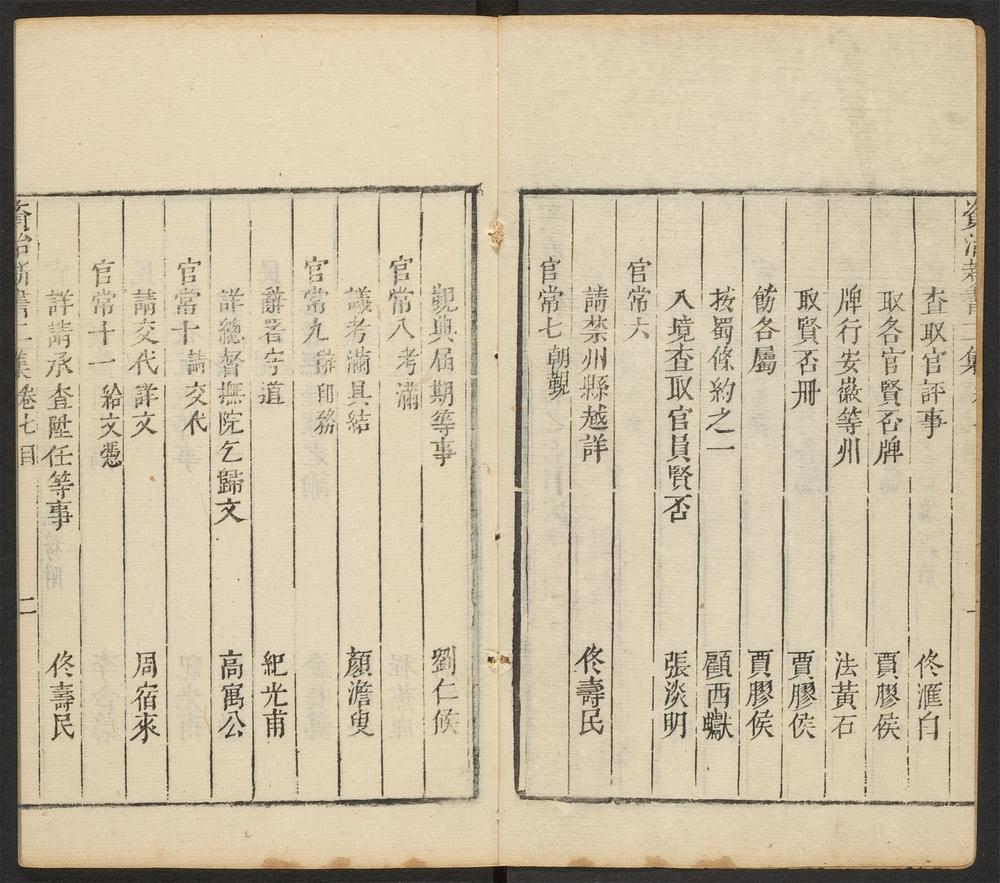 查取官評事 佟滙白
取各官賢否牌 賈膠侯
牌行安徽等州 法黃石
取賢否冊 賈膠侯
飭各屬 賈膠侯
按蜀條約之一 顧西巘
入境查取官員賢否 張淡明
官常六
請禁州縣越詳 佟壽民
官常七 朝覲
覲典屆期等事 劉仁候
官常八 考滿
議考滿具結 顏澹叟
官常九 辭印務
辭署守道 紀光甫
詳總督撫院乞歸文 高寓公
官常十 請交代
請交代詳文 周宿來
官常十一 給文憑
詳請承查陞任等事 佟壽民
資治新書二集 卷七目 二